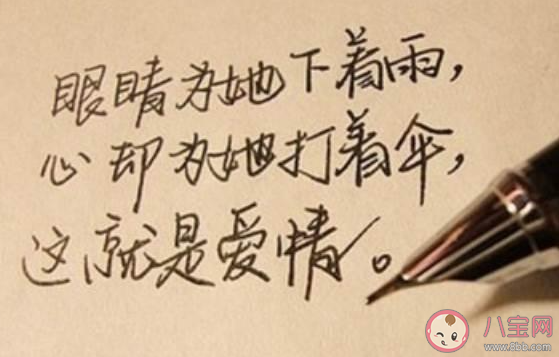 眼睛为她下着雨，
心却为她打着伞，
这就是爱情。
八宝网
www.8bb.com